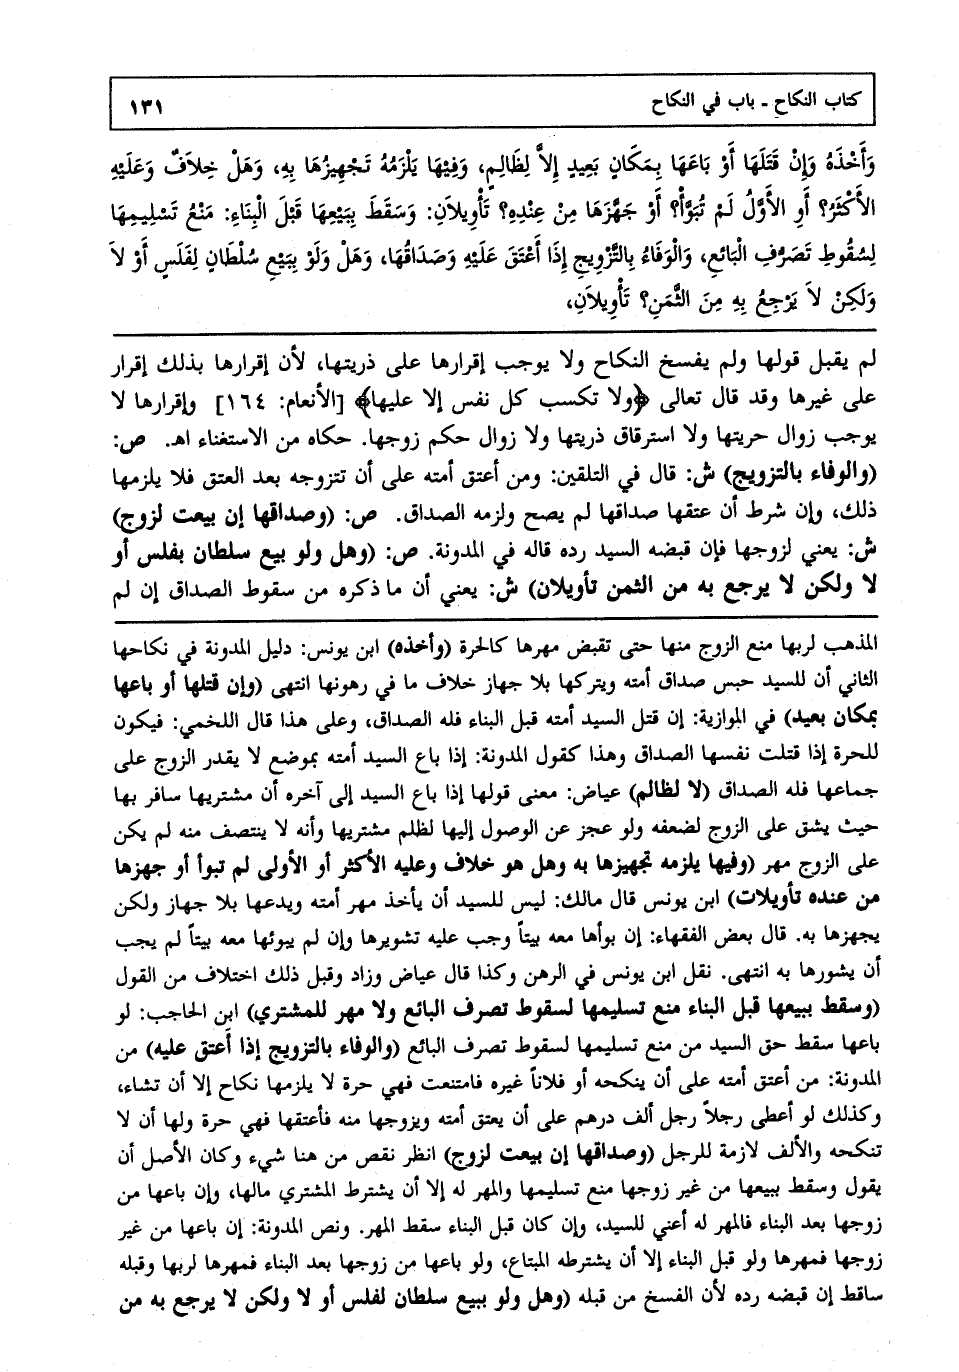 كتاب النكاح ـ باب في النكاح
١٣١
وَأَخْذَهُ وَإِنْ قَتَلَهَا أَوْ بَاعَهَا بِمَكَانٍ بَعِيدٍ إِلاَّ لِظَالِمٍ، وَفِيهَا يَلْزَمُهُ تَجْهِيزُهَا بِهِ، وَهَلْ خِلاَفٌ وَعَلَيْهِ
الأَكْثَرُ؟ أَوِ الأَوَّلُ لَمْ تُبَوَّأْ؟ أَوْ جَهَّزَهَا مِنْ عِنْدِهِ؟ تَأْوِيلاَنِ: وَسَقَطَ بِبَيْعِهَا قَبْلَ الْبِنَاءِ: مَنْعُ تَسْلِيمِهَا
لِسُقُوطِ تَصَرُّفِ الْبَائِعِ، وَالْوَفَاءُ بِالتَّزْوِيجِ إِذَا أَعْتَقَ عَلَيْهِ وَصَدَاقُهَا، وَهَلْ وَلَوْ بِبَيْعِ سُلْطَانٍ لِفَلَسٍ أَوْ لاَ
وَلَكِنْ لاَ يَرْجِعُ بِهِ مِنَ الثَّمَنِ؟ تَأْوِيلاَنِ،
لم يقبل قولها ولم يفسخ النكاح ولا يوجب إقرارها على ذريتها، لأن إقرارها بذلك إقرار
على غيرها وقد قال تعالى ﴿ولا تكسب كل نفس إلا عليها﴾ [الأنعام: ١٦٤] وإقرارها لا
يوجب زوال حريتها ولا استرقاق ذريتها ولا زوال حكم زوجها. حكاه من الاستغناء اهـ. ص:
(والوفاء بالتزويج) ش: قال في التلقين: ومن أعتق أمته على أن تتزوجه بعد العتق فلا يلزمها
ذلك، وإن شرط أن عتقها صداقها لم يصح ولزمه الصداق. ص: (وصداقها إن بيعت لزوج)
ش: يعني لزوجها فإن قبضه السيد رده قاله في المدونة. ص: (وهل ولو بيع سلطان بفلس أو
لا ولكن لا يرجع به من الثمن تأويلان) ش: يعني أن ما ذكره من سقوط الصداق إن لم
المذهب لربها منع الزوج منها حتى تقبض مهرها كالحرة (وأخذه) ابن يونس: دليل المدونة في نكاحها
الثاني أن للسيد حبس صداق أمته ويتركها بلا جهاز خلاف ما في رهونها انتهى (وإن قتلها أو باعها
بمكان بعيد) في الموازية: إن قتل السيد أمته قبل البناء فله الصداق، وعلى هذا قال اللخمي: فيكون
للحرة إذا قتلت نفسها الصداق وهذا كقول المدونة: إذا باع السيد أمته بموضع لا يقدر الزوج على
جماعها فله الصداق (لا لظالم) عياض: معنى قولها إذا باع السيد إلى آخره أن مشتريها سافر بها
حيث يشق على الزوج لضعفه ولو عجز عن الوصول إليها لظلم مشتريها وأنه لا ينتصف منه لم يكن
على الزوج مهر (وفيها يلزمه تجهيزها به وهل هو خلاف وعليه الأكثر أو الأولى لم تبوأ أو جهزها
من عنده تأويلات) ابن يونس قال مالك: ليس للسيد أن يأخذ مهر أمته ويدعها بلا جهاز ولكن
يجهزها به. قال بعض الفقهاء: إن بوأها معه بيتاً وجب عليه تشويرها وإن لم يبوئها معه بيتاً لم يجب
أن يشورها به انتهى. نقل ابن يونس في الرهن وكذا قال عياض وزاد وقبل ذلك اختلاف من القول
(وسقط ببيعها قبل البناء منع تسليمها لسقوط تصرف البائع ولا مهر للمشتري) ابن الحاجب: لو
باعها سقط حق السيد من منع تسليمها لسقوط تصرف البائع (والوفاء بالتزويج إذا أعتق عليه) من
المدونة: من أعتق أمته على أن ينكحه أو فلاناً غيره فامتنعت فهي حرة لا يلزمها نكاح إلا أن تشاء،
وكذلك لو أعطى رجلاً رجل ألف درهم على أن يعتق أمته ويزوجها منه فأعتقها فهي حرة ولها أن لا
تنكحه والألف لازمة للرجل (وصداقها إن بيعت لزوج) انظر نقص من هنا شيء وكان الأصل أن
يقول وسقط ببيعها من غير زوجها منع تسليمها والمهر له إلا أن يشترط المشتري مالها، وإن باعها من
زوجها بعد البناء فالمهر له أعني للسيد، وإن كان قبل البناء سقط المهر. ونص المدونة: إن باعها من غير
زوجها فمهرها ولو قبل البناء إلا أن يشترطه المبتاع، ولو باعها من زوجها بعد البناء فمهرها لربها وقبله
ساقط إن قبضه رده لأن الفسخ من قبله (وهل ولو ببيع سلطان لفلس أو لا ولكن لا يرجع به من